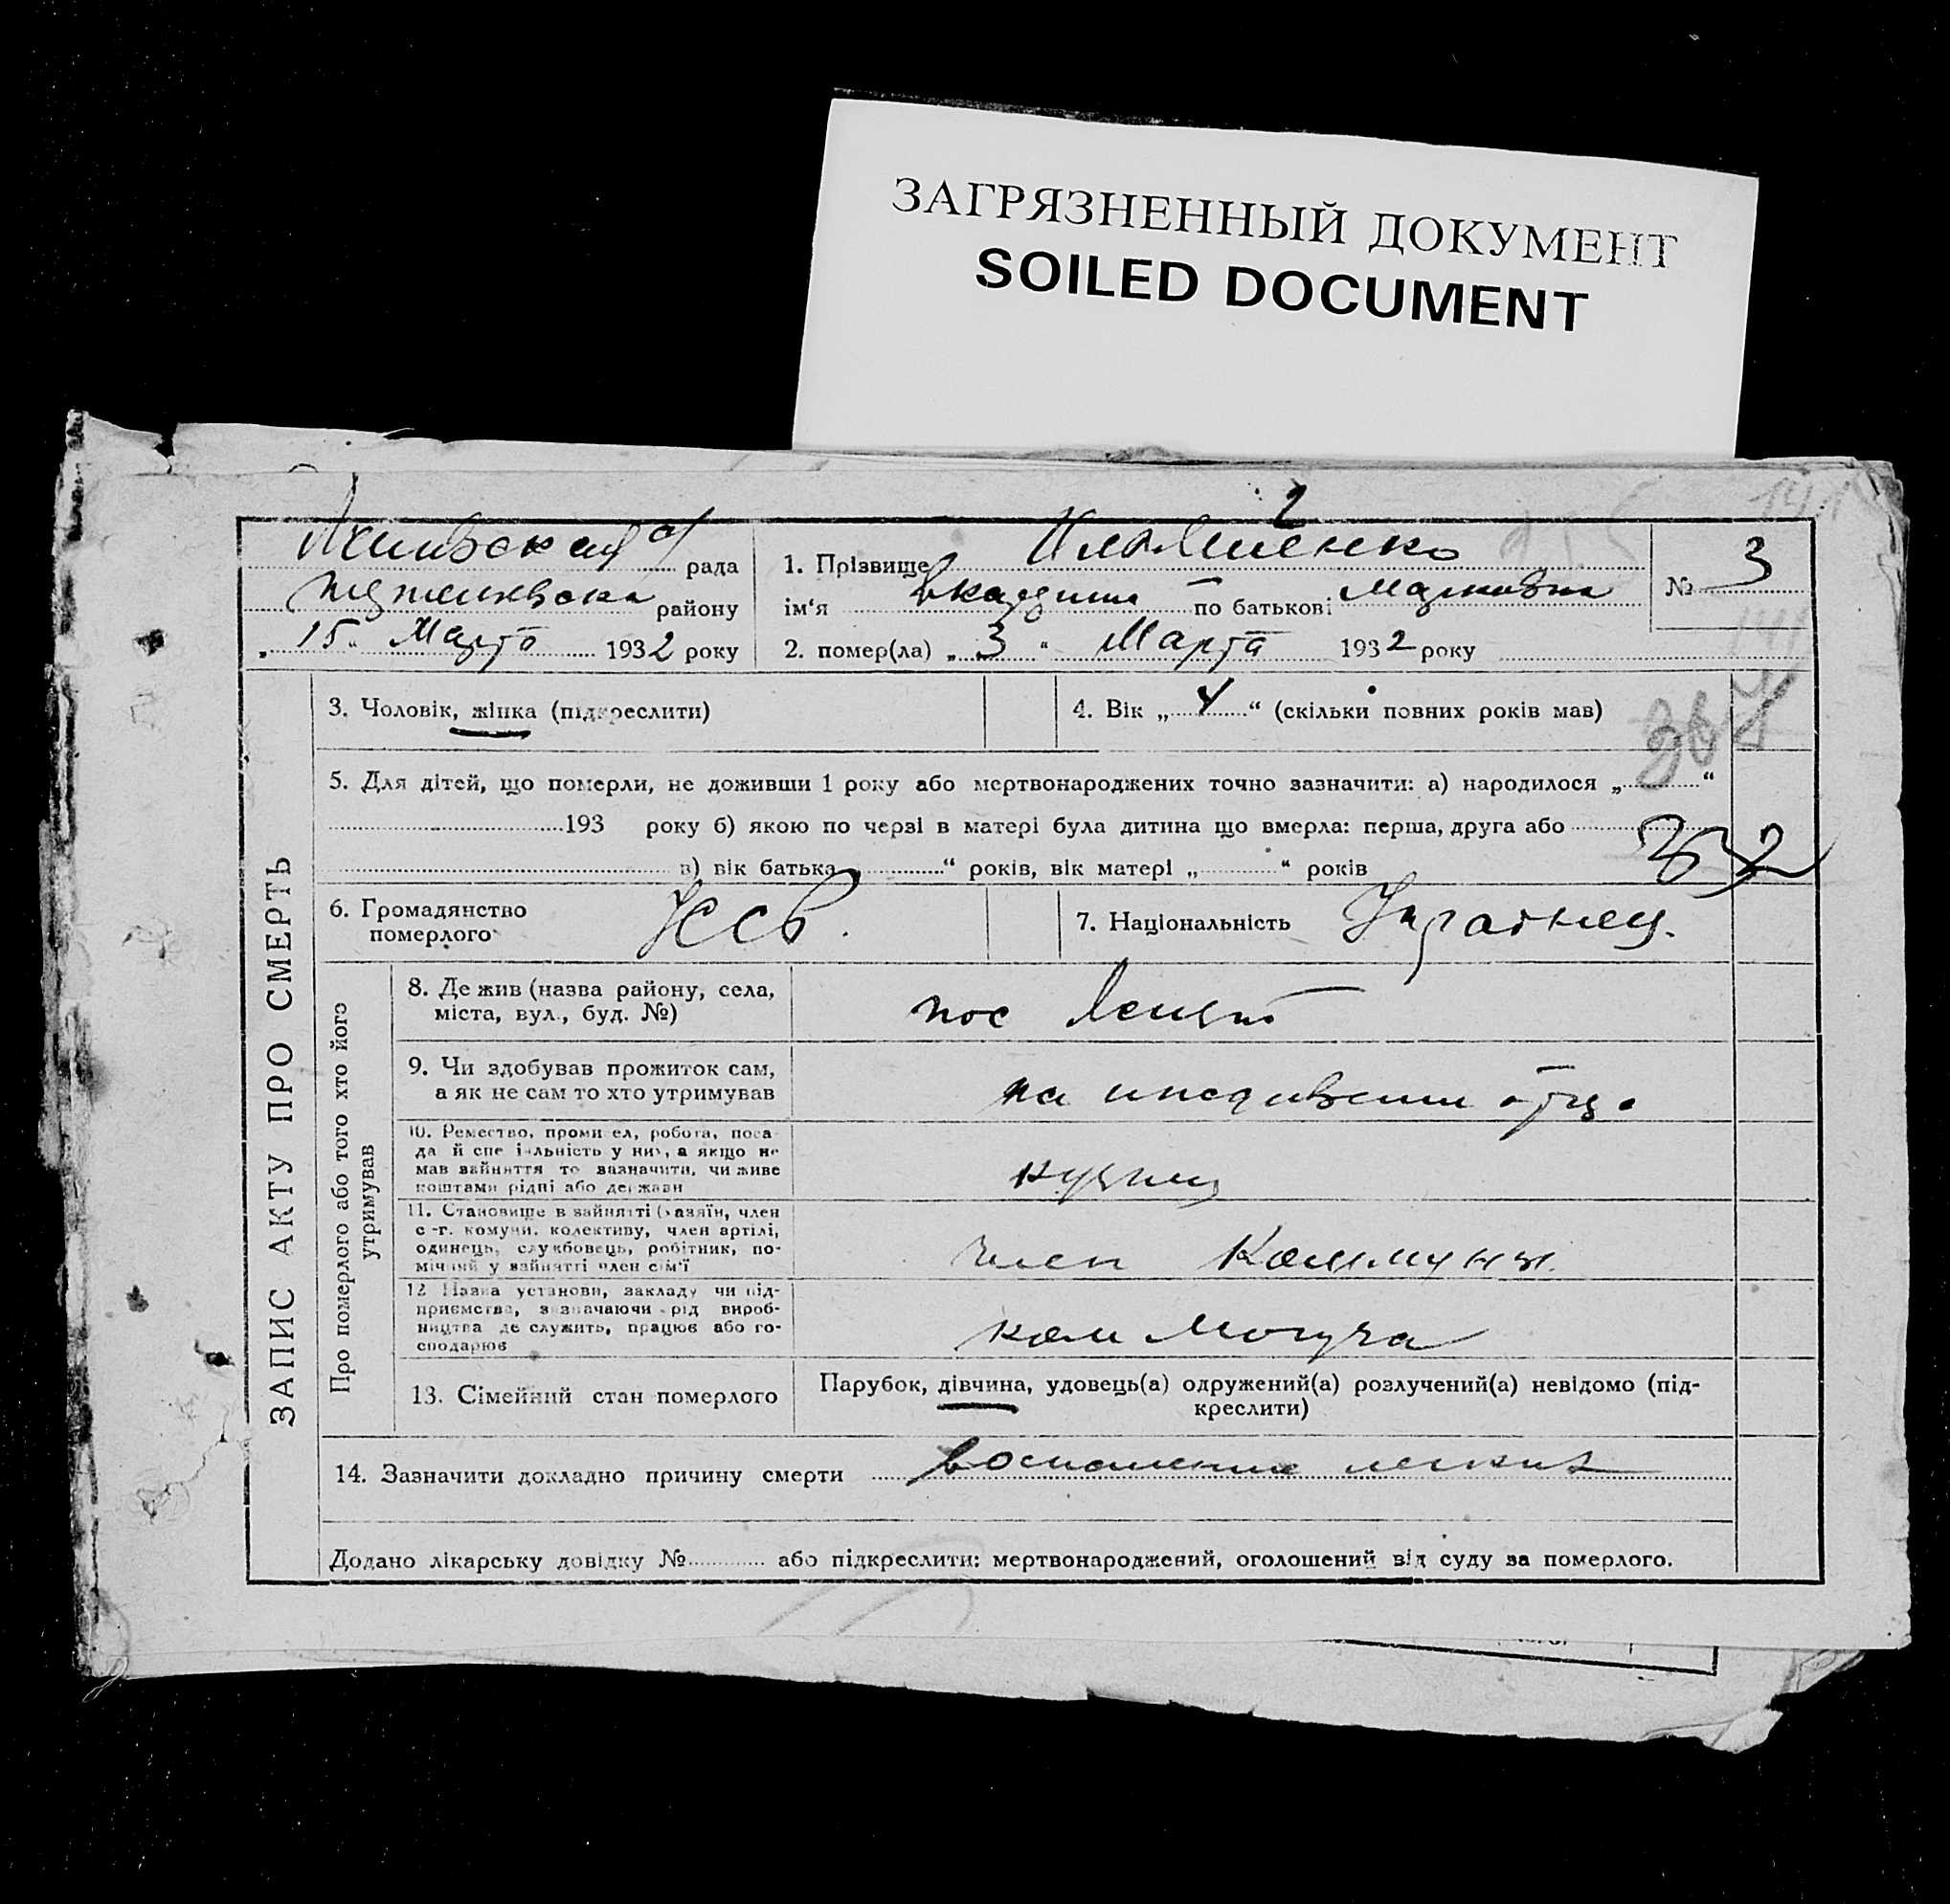 ЗАГРЯЗНЕННЫЙ ДОКУМЕНТ
SOILED DOCUMENT
2
рада
району
"15" Марта 1932 року
1. Прізвище
ім'я по батькові
2. помер(ла) „3“ Марта 1932 року
№ 3
ЗАПИС АКТУ ПРО СМЕРТЬ
3. Чоловік, жінка (підкреслити)
4. Вік „4“ (скільки повних років мав)
5. Для дітей, що померли, не доживши 1 року або мертвонароджених точно зазначити: а) народилося „ “
193 року б) якою по черзі в матері була дитина що вмерла: перша, друга або
в) вік батька “ років, вік матері „ “ років
6. Громадянство
померлого
7. Національність Украінец.
Про померлого або того хто його
утримував
8. Де жив (назва району, села,
міста, вул., буд. №)
пос
9. Чи здобував прожиток сам,
а як не сам то хто утримував
на иждивении отца
10. Ремество, промисел, робота, поса-
да й спеціяльність у них, а якщо не
мав зайняття то зазначити, чи живе
коштами рідні або держави
кузнец
11. Становище в зайнятті (хазяїн, член
с-г. комуни, колективу, член артілі,
одинець, службовець, робітник, по-
мічний у зайнятті член сім'ї
член Коммуны
12. Назва установи, закладу чи під-
приємства, зазначаючи рід вироб-
ництва де служить, працює або го-
сподарює
ком
13. Сімейний стан померлого
Парубок, дівчина, удовець(а) одружений(а) розлучений(а) невідомо (під-
креслити)
14. Зазначити докладно причину смерти воспаление легких
Додано лікарську довідку № або підкреслити: мертвонароджений, оголошений від суду за померлого.